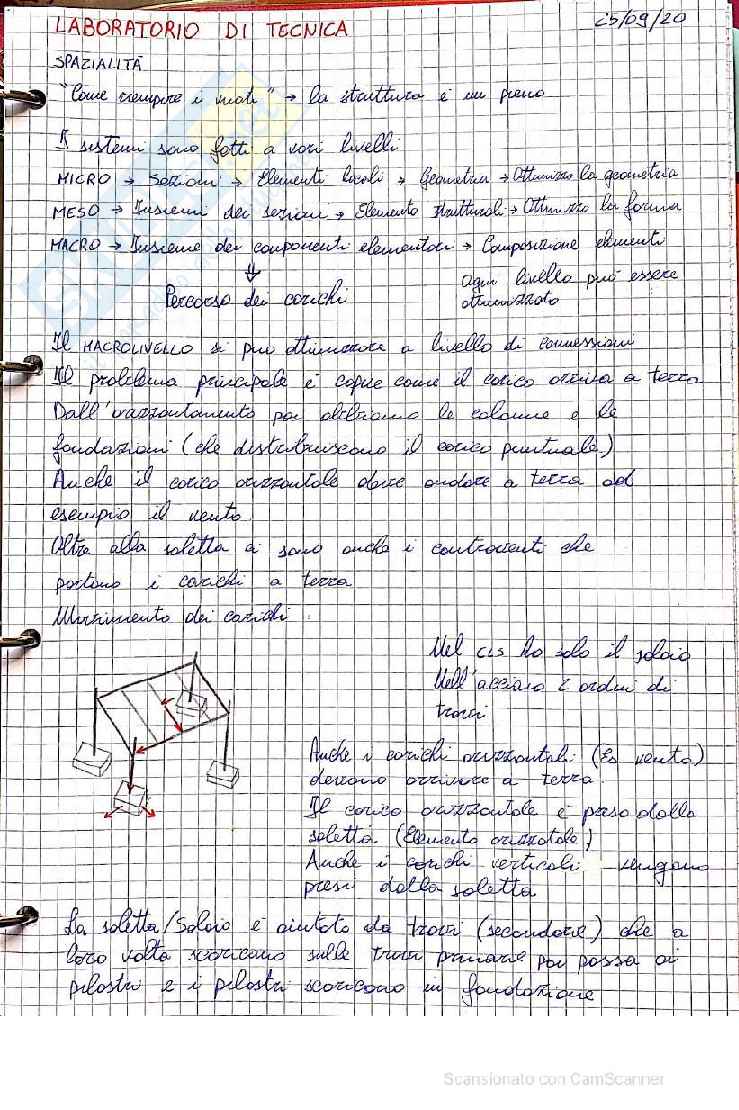 LABORATORIO DI TECNICA
25/09/20
SPAZIALITÀ
"Come riempire i vuoti" → la struttura è un pieno
I sistemi sono fatti a vari livelli
MICRO → Sezioni → Elementi locali → Geometria → Ottimizzo la geometria
MESO → Insiemi dei sezioni → Elemento strutturali → Ottimizzo la forma
MACRO → Insieme dei componenti elementari → Composizione elementi
Percorso dei carichi
Ogni livello può essere
ottimizzato
Il MACROLIVELLO si può ottimizzare a livello di connessioni
Il problema principale è capire come il carico arriva a terra
Dall'orizzontamento poi abbiamo le colonne e le
fondazioni (che distribuiscono il carico puntuale)
Anche il carico orizzontale deve andare a terra ad
esempio il vento
Oltre alla soletta ci sono anche i controventi che
portano i carichi a terra
dei carichi
Nel cls ho solo il solaio
Nell'acciaio 2 ordini di
travi
Anche i carichi orizzontali (Es vento)
devono arrivare a terra.
Il carico orizzontale è preso dalla
soletta (Elemento orizzontale)
Anche i carichi verticali vengono
presi dalla soletta
La soletta/Solaio è aiutato da travi (secondarie) che a
loro volta scaricano sulle travi primarie poi passa ai
pilastri e i pilastri scaricano in fondazione
Scansionato con CamScanner